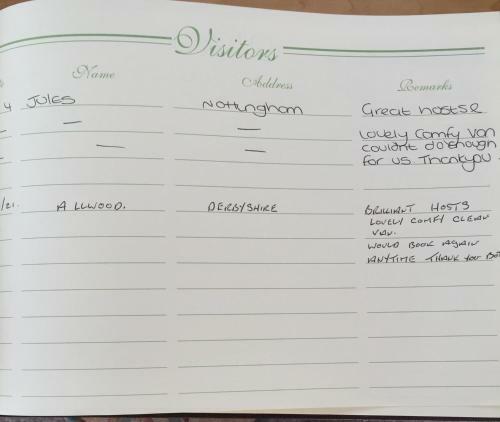 Visitors
Name Address Remarks
4 JULES Nottingham Great hosts &
— — Lovely Comfy Van
— — couldnt do enough
for us Thankyou.
/21. A LLWOOD. DERBYSHIRE BRILLIANT HOSTS
LOVELY COMFY CLEAN
VAN.
WOULD BOOK AGAIN
ANYTIME THANK YOU BOT